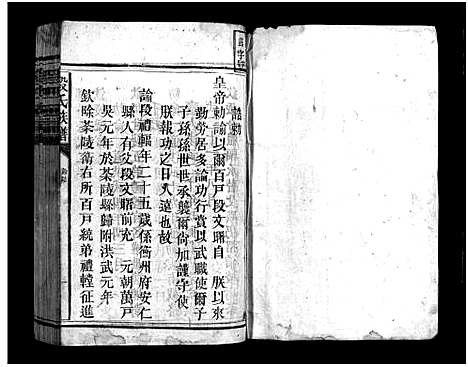 誥勅
皇帝勅諭以爾百戶段文賭自　朕以來
勤勞居多論功行賞以武職使爾子
子孫孫世世承襲爾尙加謹守使
朕報功之日久遠也故
諭段禮輻年二十五歲係衡州府安仁
縣人有父段文賭前充　元朝萬戶
吳元年於茶陵歸附洪武元年
欽除茶陵衛右所百戶統弟禮轋征進
段氏族譜